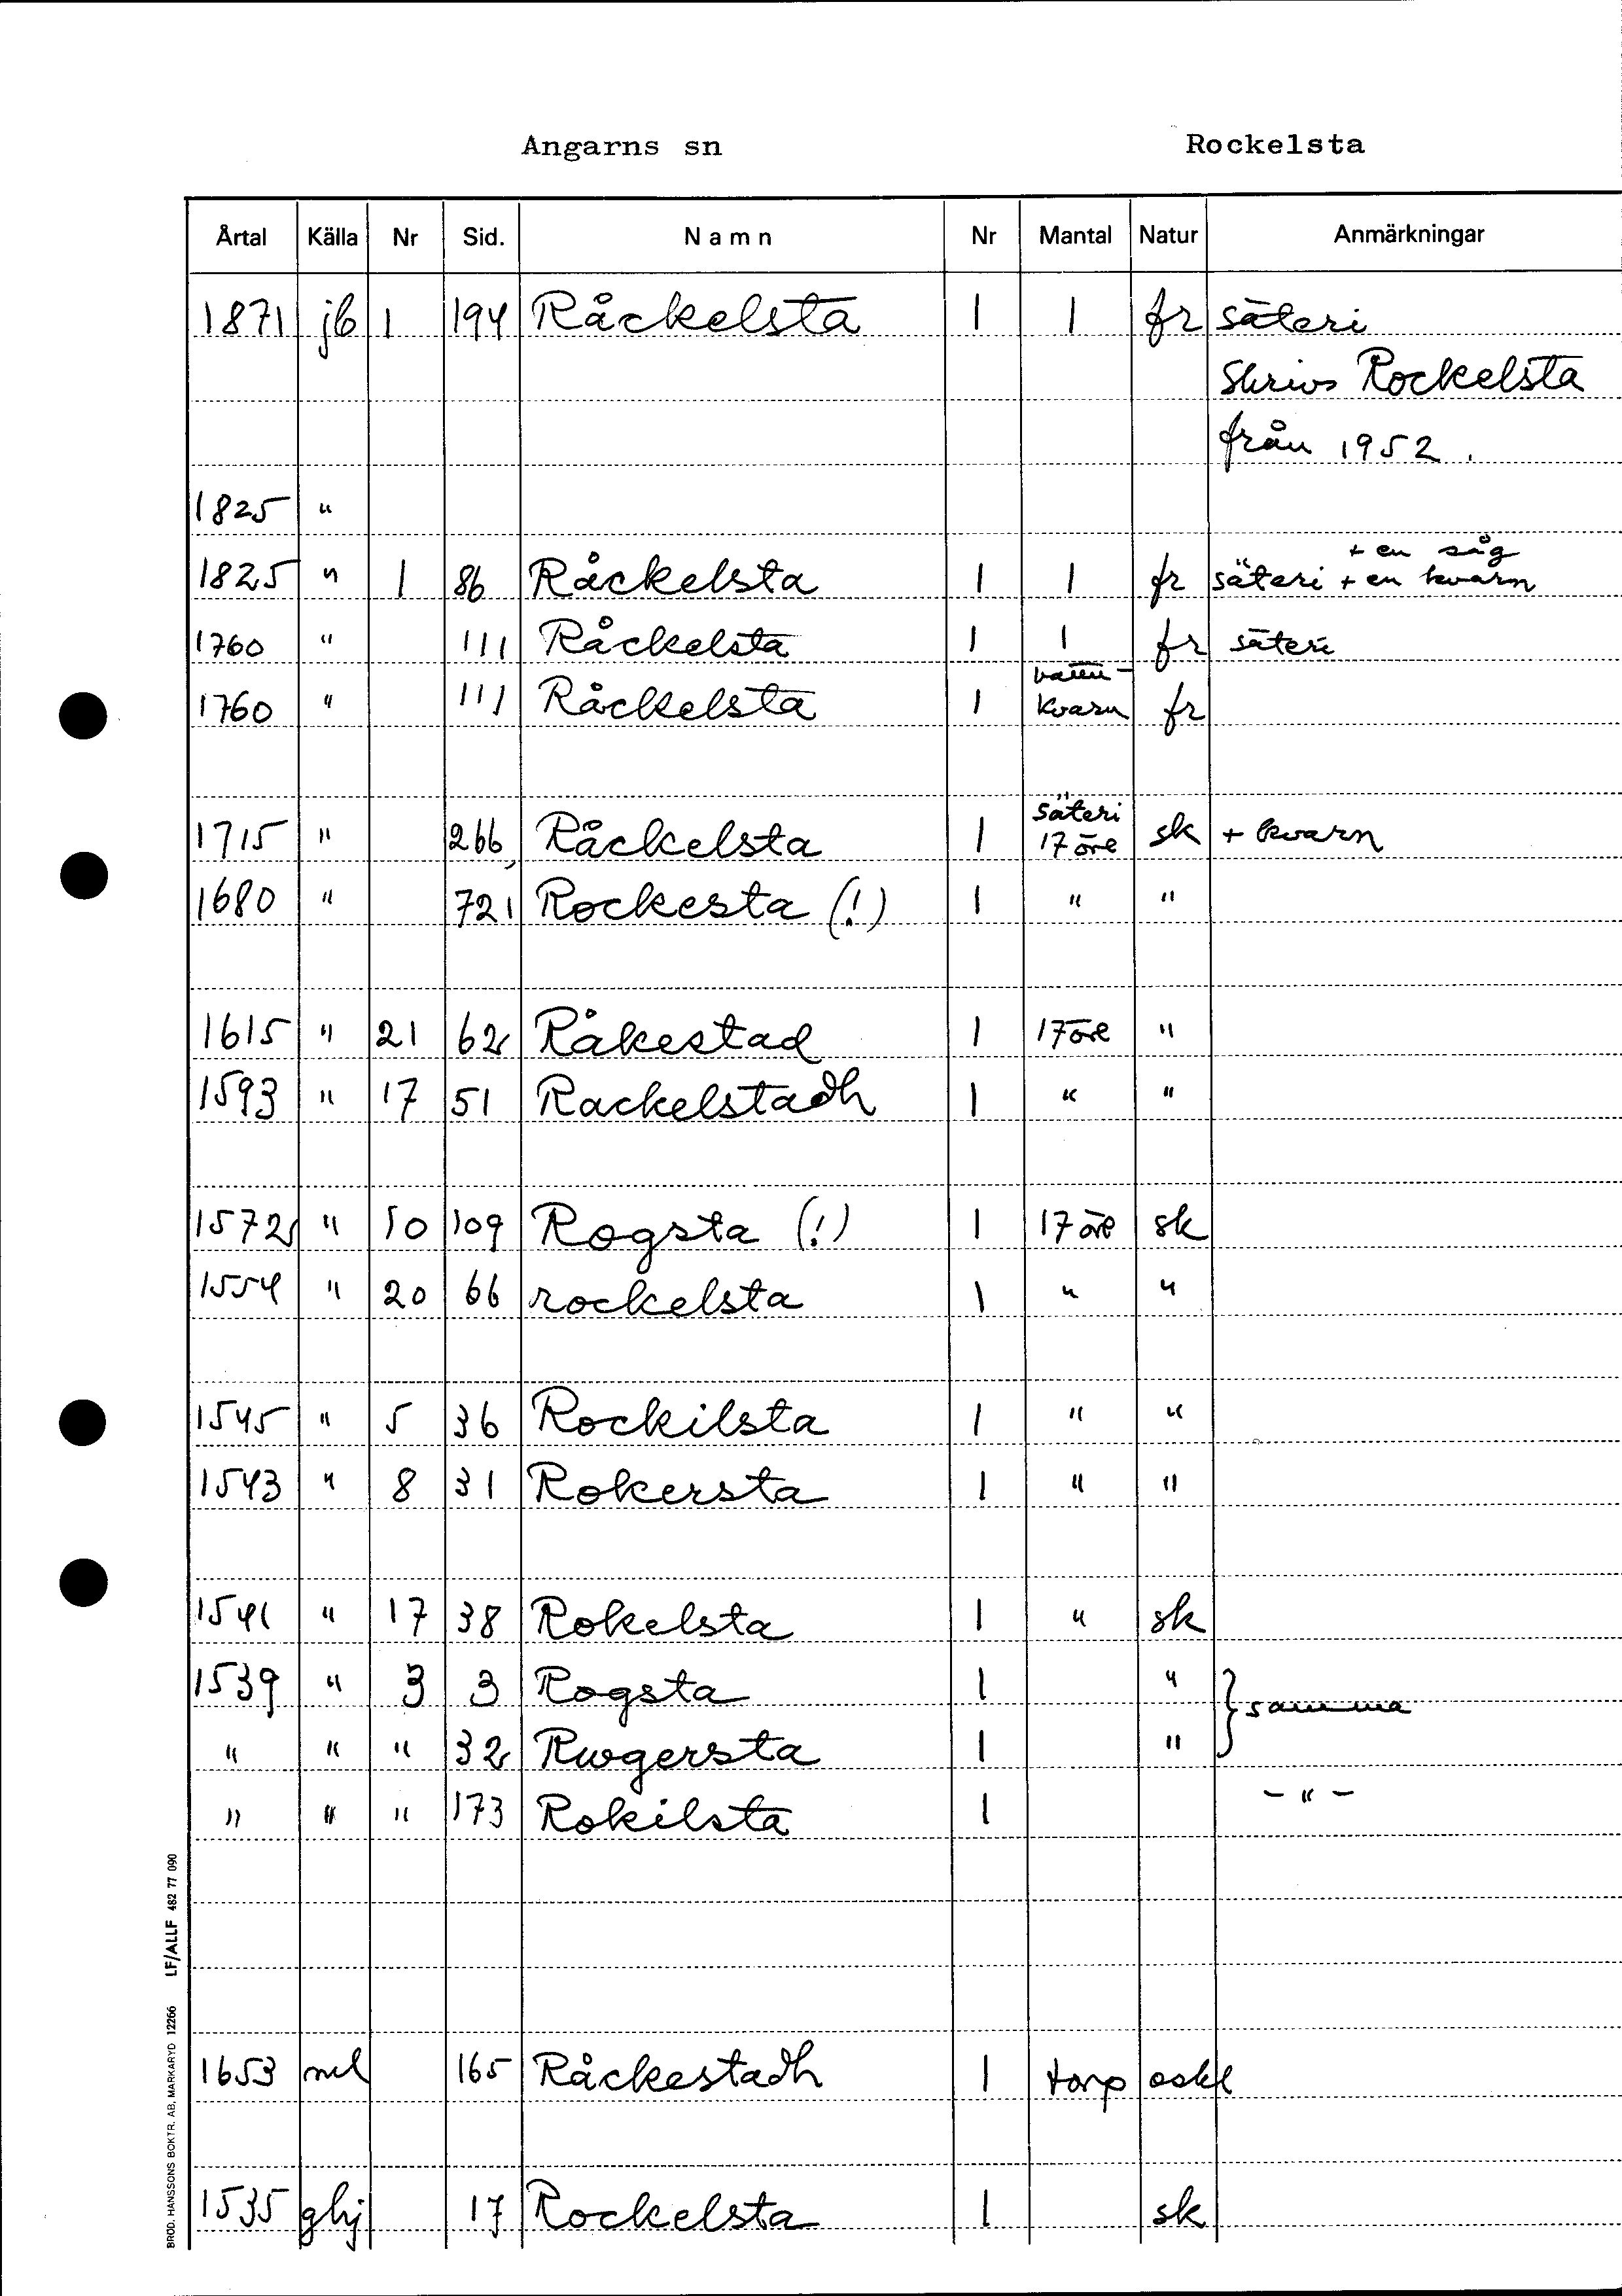 Angarns sn Rockelsta
Årtal Källa Nr Sid. Namn Nr Mantal Natur Anmärkningar
1871 jb 1 194 Råckelsta 1 1 fr säteri
Skrivs Rockelsta
från 1952.
1825 "
+ en såg
1825 " 1 86 Råckelsta 1 1 fr säteri + en kvarn
1760 " 111 Råckelsta 1 1 fr säteri
vatten-
1760 " 111 Råckelsta 1 kvarn fr
säteri
1715 " 266 Råckelsta 1 17 öre sk + kvarn
1680 " 721 Rockesta (!) 1 " "
1615 " 21 62 Råkestad 1 17 öre "
1593 " 17 51 Rackelstadh 1 " "
1572 " 10 109 Rogsta (!) 1 17 öre sk
1554 " 20 66 rockelsta 1 " "
1545 " 5 36 Rockilsta 1 " "
1543 " 8 31 Rokersta 1 " "
1541 " 17 38 Rokelsta 1 " sk
1539 " 3 3 Rogsta 1 "
} samma
" " " 32 Rwgersta 1 "
" " " 173 Rokilsta 1 - " -
1653 ml 165 Råckestadh 1 torp
1535 ghj 17 Rockelsta 1 sk
BRÖD. HANSSONS BOKTR. AB, MARKARYD 12266 LF/ALLF 482 77 090